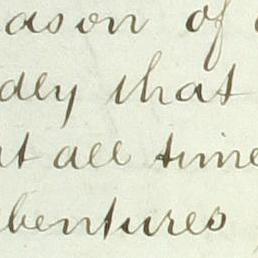 eason of
dly that
at all time
ebentures